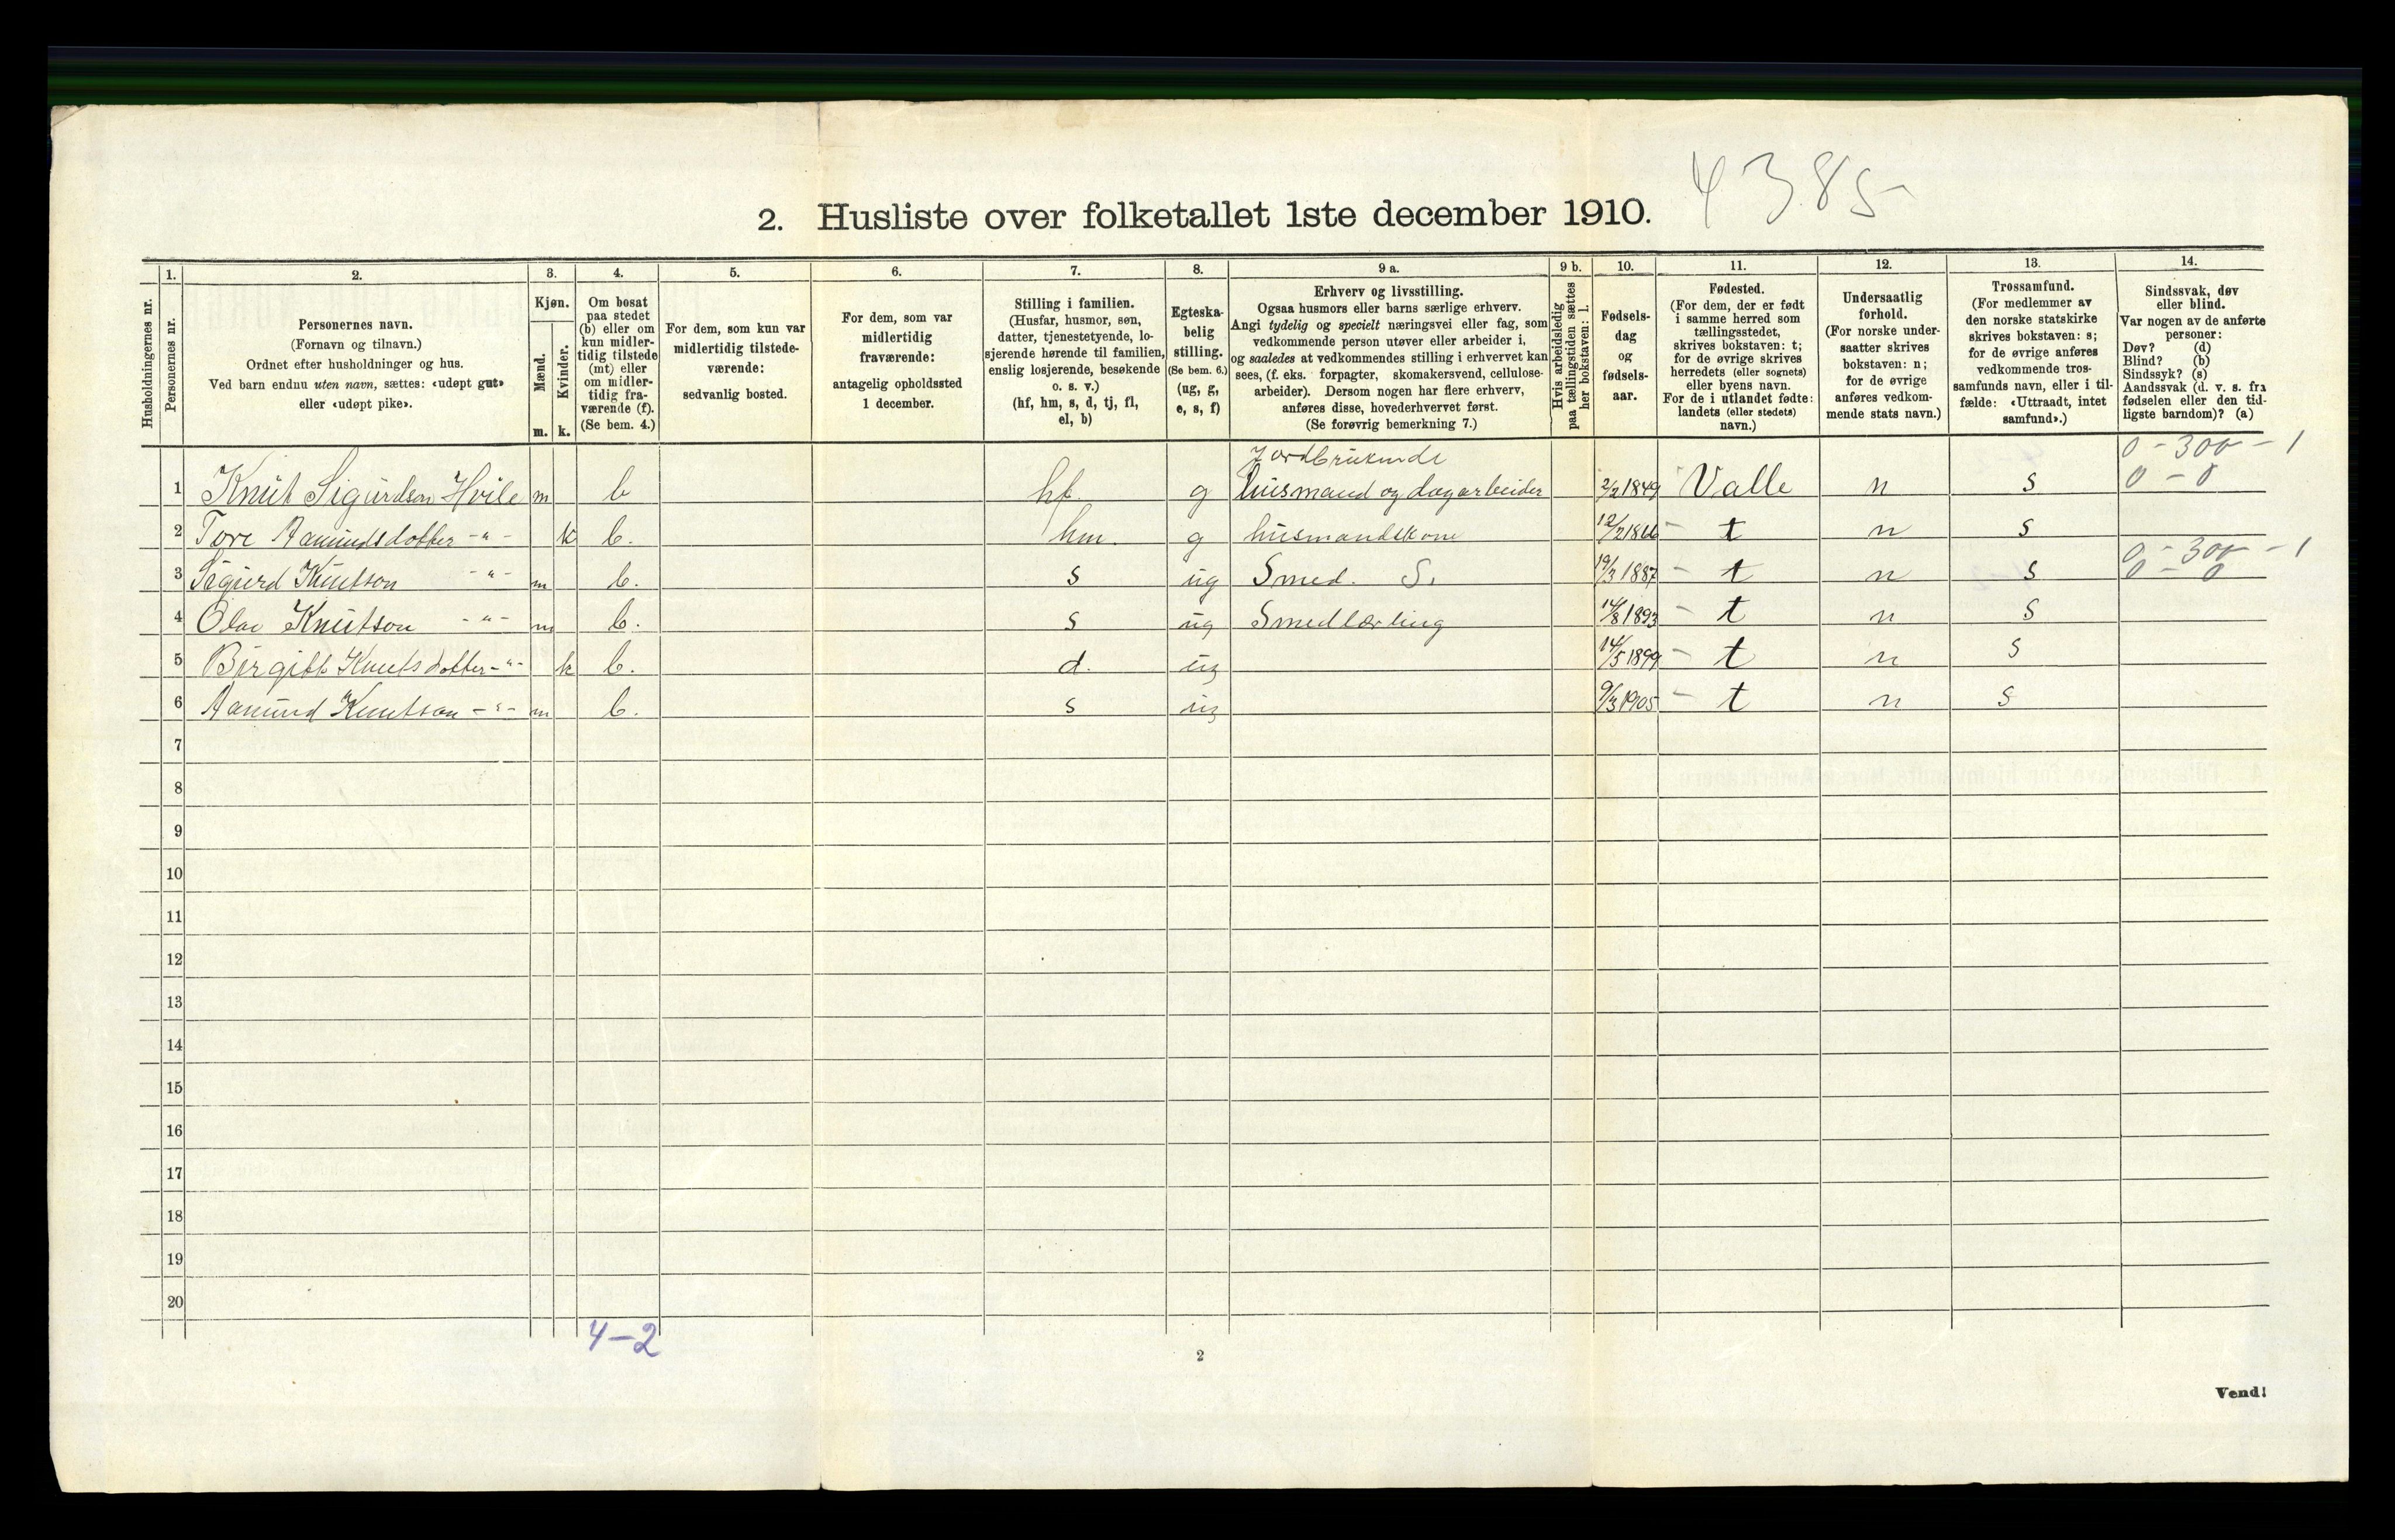 4385
2. Husliste over folketallet 1ste december 1910.
Husholdningernes nr.
1. Personernes nr.
2. Personernes navn. (Fornavn og tilnavn.) Ordnet efter husholdninger og hus. Ved barn endnu uten navn, sættes: «udøpt gut» eller «udøpt pike».
3. Kjøn. Mænd. m. Kvinder. k.
4. Om bosat paa stedet (b) eller om kun midlertidig tilstede (mt) eller om midlertidig fraværende (f). (Se bem. 4.)
5. For dem, som kun var midlertidig tilstedeværende: sedvanlig bosted.
6. For dem, som var midlertidig fraværende: antagelig opholdssted 1 december.
7. Stilling i familien. (Husfar, husmor, søn, datter, tjenestetyende, losjerende hørende til familien, enslig losjerende, besøkende o. s. v.) (hf, hm, s, d, tj, fl, el, b)
8. Egteskabelig stilling. (Se bem. 6.) (ug, g, e, s, f)
9 a. Erhverv og livsstilling. Ogsaa husmors eller barns særlige erhverv. Angi tydelig og specielt næringsvei eller fag, som vedkommende person utøver eller arbeider i, og saaledes at vedkommendes stilling i erhvervet kan sees, (f. eks. forpagter, skomakersvend, cellulosearbeider). Dersom nogen har flere erhverv, anføres disse, hovederhvervet først. (Se forøvrig bemerkning 7.)
9 b. Hvis arbeidsledig paa tællingstiden sættes her bokstaven: l.
10. Fødselsdag og fødselsaar.
11. Fødested. (For dem, der er født i samme herred som tællingsstedet, skrives bokstaven: t; for de øvrige skrives herredets (eller sognets) eller byens navn. For de i utlandet fødte: landets (eller stedets) navn.)
12. Undersaatlig forhold. (For norske undersaatter skrives bokstaven: n; for de øvrige anføres vedkommende stats navn.)
13. Trossamfund. (For medlemmer av den norske statskirke skrives bokstaven: s; for de øvrige anføres vedkommende trossamfunds navn, eller i tilfælde: «Uttraadt, intet samfund».)
14. Sindssvak, døv eller blind. Var nogen av de anførte personer: Døv? (d) Blind? (b) Sindssyk? (s) Aandssvak (d. v. s. fra fødselen eller den tidligste barndom)? (a)
Jordbrukende 0 - 300 - 1
1 Knut Sigurdson Hvile m b hf. g husmand og dagarbeider 2/2 1849 Valle n s 0 - 0
2 Tore Aamundsdotter -"- k b. hm. g husmandskone 12/2 1866 - t n s
0 - 300 - 1
3 Sigurd Knutson -"- m b. s ug Smed. S. 19/3 1887 - t n s 0 - 0
4 Olav Knutson -"- m b. s ug Smedlærling 14/8 1893 - t n s
5 Birgitt Knutsdotter -"- k b. d. ug 14/5 1899 - t n s
6 Aamund Knutson -"- m b. s ug 9/3 1905 - t n s
7
8
9
10
11
12
13
14
15
16
17
18
19
20
4-2
2
Vend!